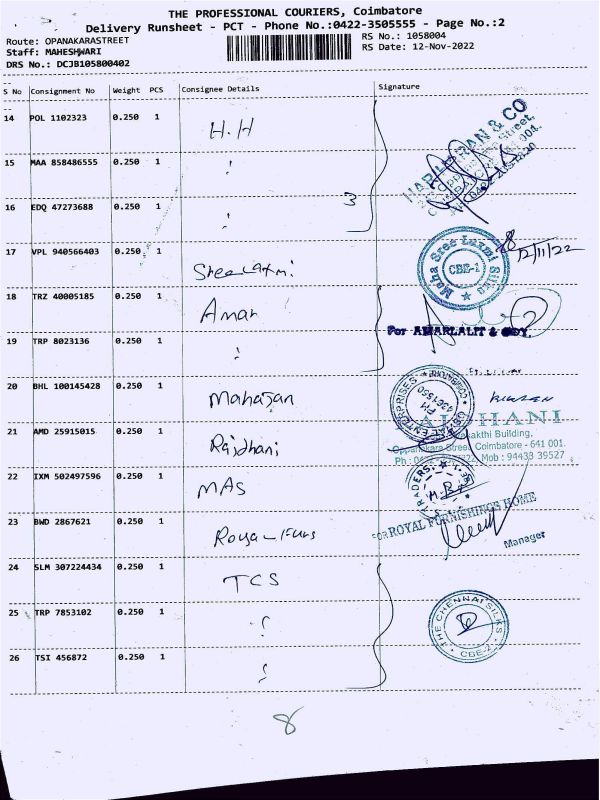 THE PROFESSIONAL COURIERS, Coimbatore
Delivery Runsheet - PCT - Phone No.:0422-3505555 - Page No.:2
Route: OPANAKARASTREET
RS No.: 1058004
Staff: MAHESHWARI
RS Date: 12-Nov-2022
DRS No.: DCJB105800402
S No Consignment No Weight PCS Consignee Details Signature
14 POL 1102323 0.250 1 H.H
15 MAA 858486555 0.250 1 "
16 EDQ 47273688 0.250 1 " 3
HARI & CO
17 VPL 940566403 0.250 1 Sree Laxmi
Maha Sree Laxmi Silks CBE-1
12/11/22
18 TRZ 40005185 0.250 1 Aman
For AMARLALIT & COY.
19 TRP 8023136 0.250 1 "
20 BHL 100145428 0.250 1 Mahajan
ENTERPRISES
21 AMD 25915015 0.250 1 Rajdhani
HANI
akthi Building,
Oppanakara Street, Coimbatore - 641 001.
Mob : 94433 39527
22 IXM 502497596 0.250 1 MAS
TRADERS
23 BWD 2867621 0.250 1 Royal Furs
FOR ROYAL FURNISHINGS HOME
Manager
24 SLM 307224434 0.250 1 TCS
25 TRP 7853102 0.250 1 "
THE CHENNAI SILKS CBE-2
26 TSI 456872 0.250 1 "
8